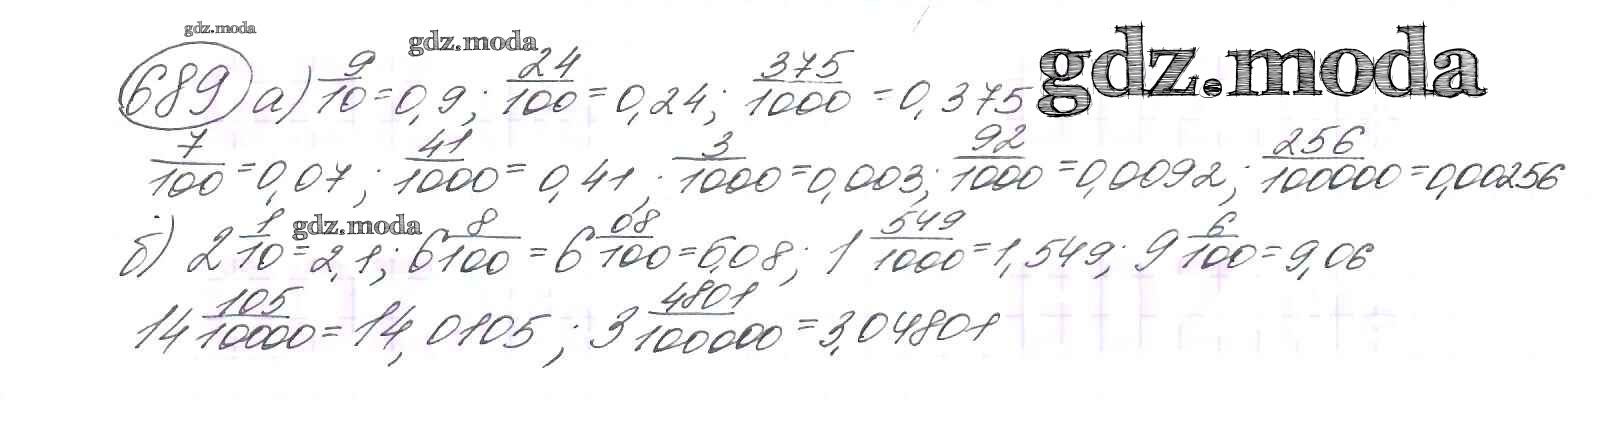 gdz.moda
689 а) 9/10 = 0,9; 24/100 = 0,24; 375/1000 = 0,375
gdz.moda
gdz.moda
7/100 = 0,07; 41/1000 = 0,41; 3/1000 = 0,003; 92/1000 = 0,0092; 256/100000 = 0,00256
б) 2 1/10 = 2,1; 6 8/100 = 6 08/100 = 6,08; 1 549/1000 = 1,549; 9 6/100 = 9,06
gdz.moda
14 105/10000 = 14,0105; 3 4801/100000 = 3,04801